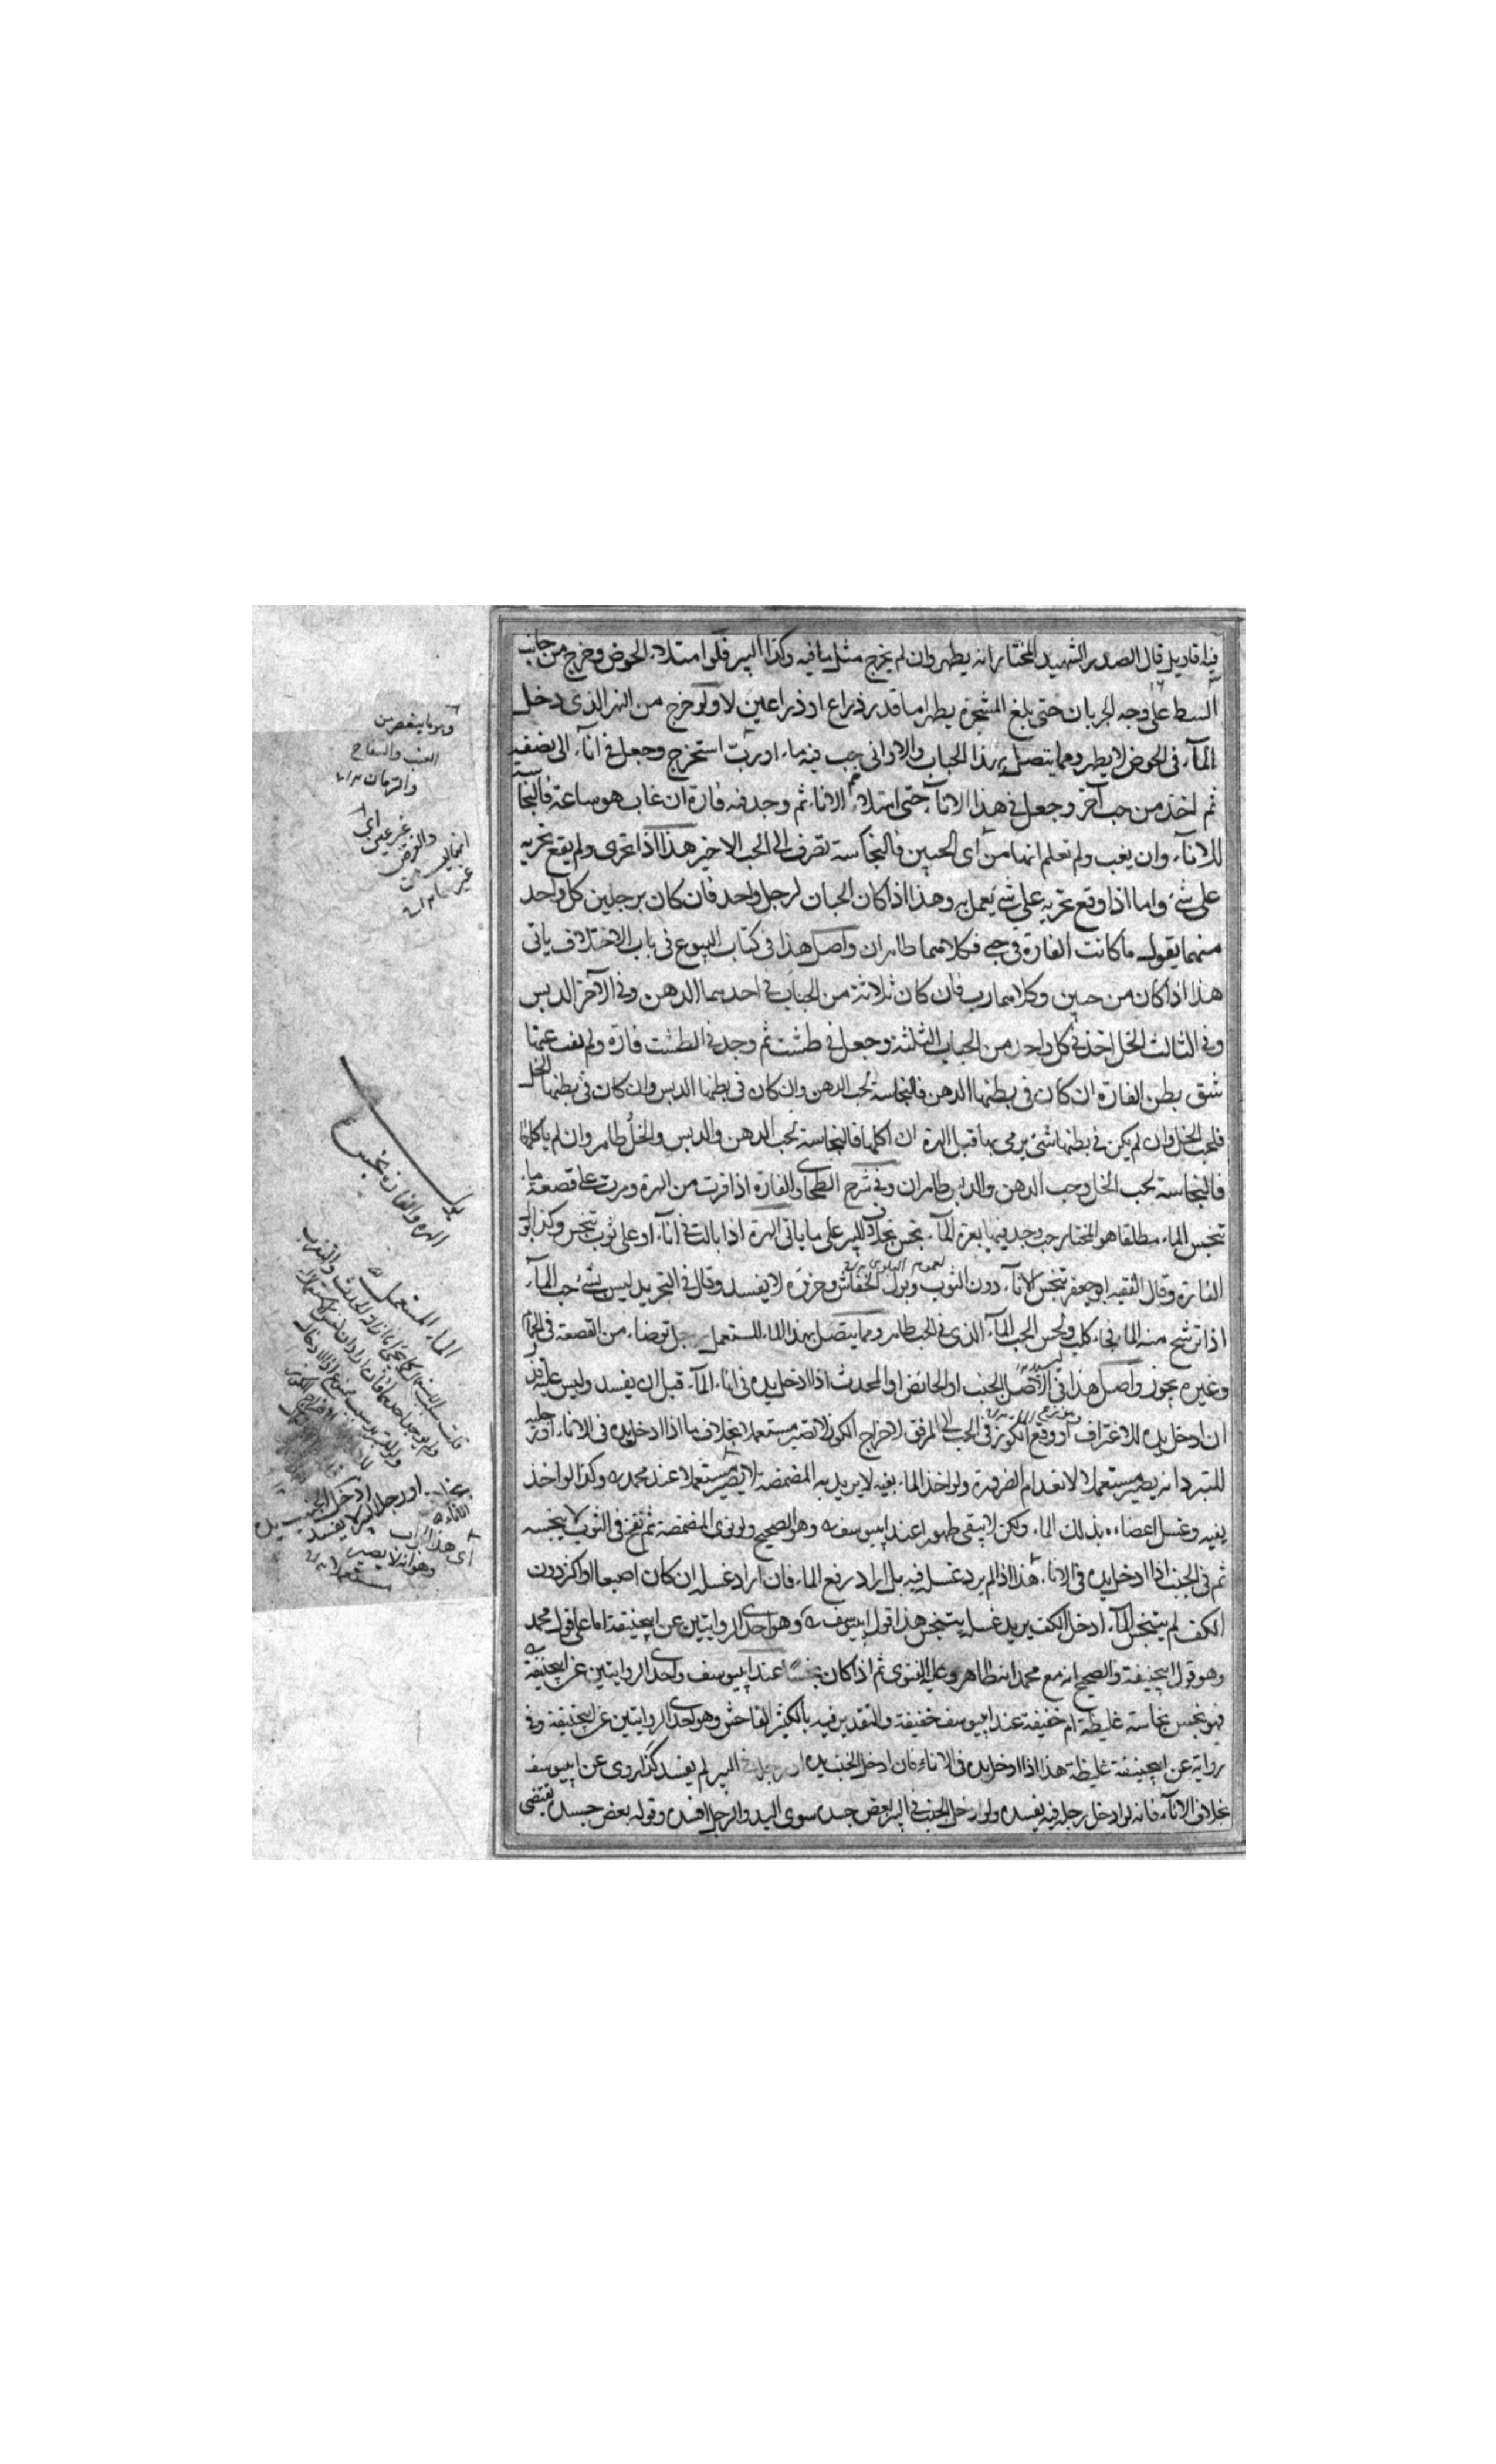 فيه اقاويل قال الصدر الشهيد المختار انه يطهر وان لم يخرج مثل ما فيه وكذا البير فلو امتلاء الحوض وخرج من جانب
الشط على وجه الجريان حتى بلغ المشجرة يطهر اما قدر ذراع او ذراعين لا ولو خرج من النهر الذى دخل
الماء فى الحوض لا يطهر ومما يتصل بهذا الحباب والاوانى حب فيه ماء او رب استخرج وجعل فى اناء الى نصفه
ثم اخذ من حب آخر وجعل فى هذا الاناء حتى امتلاء الاناء ثم وجد فيه فارة ان غاب هو ساعة فالنجا
للاناء وان لم يغب ولم تعلم انها من اى الحبين فالنجاسة تصرف الى الحب الاخير هذا اذا تحرى ولم يقع تحريه
على شئ واما اذا وقع تحريه على شئ يعمل به وهذا اذا كان الحبان لرجل واحد فان كان برجلين كل واحد
منهما يقول ما كانت الفارة فى حبى فكلاهما طاهران واصل هذا فى كتاب البيوع فى باب الاختلاف ياتى
هذا اذا كان من حبين وكلاهما رب فان كان ثلاثة من الحباب فى احدهما الدهن وفى الآخر الدبس
وفى الثالث الخل اخذ فى كل واحد من الحباب الثلثة وجعل فى طشت ثم وجد فى الطشت فارة ولم يغب عنها
شق بطن الفارة ان كان فى بطنها الدهن فالنجاسة لحب الدهن وان كان فى بطنها الدبس وان كان فى بطنها الخل
فلحب الخل وان لم يكن فى بطنها شئ يرمى بها قبل الهرة ان اكلها فالنجاسة لحب الدهن والدبس والخل طاهر وان لم ياكلها
فالنجاسة لحب الخل وحب الدهن والدبس طاهران وفى شرح الطحاوى الفارة اذا فرت من الهرة ومرت على قصعة ماء
تنجس الماء مطلقا هو المختار حب وجد فيها بعرة الماء نجس بخلاف البير على ما ياتى الهرة اذا بالت فى اناء او على ثوب تنجس وكذا بول
الفارة وقال الفقيه ابو جعفر تنجس الاناء دون الثوب وبول الخفاش وخرؤه لا يفسد وقال فى التجريد ليس بشئ حب الماء
لعموم البلوى
اذا ترشح منه الماء فجاء كلب ولحس الحب الماء الذى فى الحب طاهر ومما يتصل بهذا الماء المستعمل رجل توضاء من القصعة فى الحمام
وغيره يجوز واصل هذا فى الاصل الجنب او الحائض او المحدث اذا ادخل يده فى اناء الماء قبل ان يفسد وليس عليه قذر
ان ادخل يده للاغتراف او وقع الكوز فى الحب الى المرفق لاخراج الكوز لا تصير مستعملا بخلاف ما اذا ادخل يده فى الاناء او رجليه
للتبرد انه يصير مستعملا لانعدام الضرورة ولو اخذ الماء بفيه لا يريد به المضمضة لا يصير مستعملا عند محمد وكذا لو اخذ
بفيه وغسل اعضاءه بذلك الماء ولكن لا يبقى طهورا عند ابيوسف وهو الصحيح ولو نوى المضمضة ثم نفخ فى الثوب لا ينجسه
ثم فى الجنب اذا ادخل يده فى الاناء هذا اذا لم يرد غسله فيه بل اراد رفع الماء فان اراد غسله ان كان اصبعا او اكثر دون
الكف لم يتنجس الماء ادخل الكف يريد غسله يتنجس هذا قول ابيوسف وهو احدى الروايتين عن ابيحنيفة اما على قول محمد
وهو قول ابيحنيفة والصحيح انه مع محمد انه طاهر وعليه الفتوى ثم اذا كان نجسا عند ابيوسف واحدى الروايتين عن ابيحنيفة
فهو نجس نجاسة غليظة ام خفيفة عند ابيوسف خفيفة والتقدير فيه بالكثير الفاحش وهو احدى الروايتين عن ابيحنيفة وفى
رواية عن ابيحنيفة غليظة هذا اذا ادخل يده فى الاناء فان ادخل الجنب يده او رجله فى البير لم يفسد كذا روى عن ابيوسف
بخلاف الاناء فانه لو ادخل رجله فيه يفسده ولو ادخل الجنب فى البير بعض جسده سوى اليد والرجل افسده وقوله بعض جسده يقتضى
وهو ما يعصر من
العنب والتفاح
والرمان
بول
الهرة والفارة نجس
الماء المستعمل
ادخل الجنب يده
او رجله البير لا يفسد
بخلاف
الاناء
اى هذا الباب
وهو انه لا يصير
مستعملا